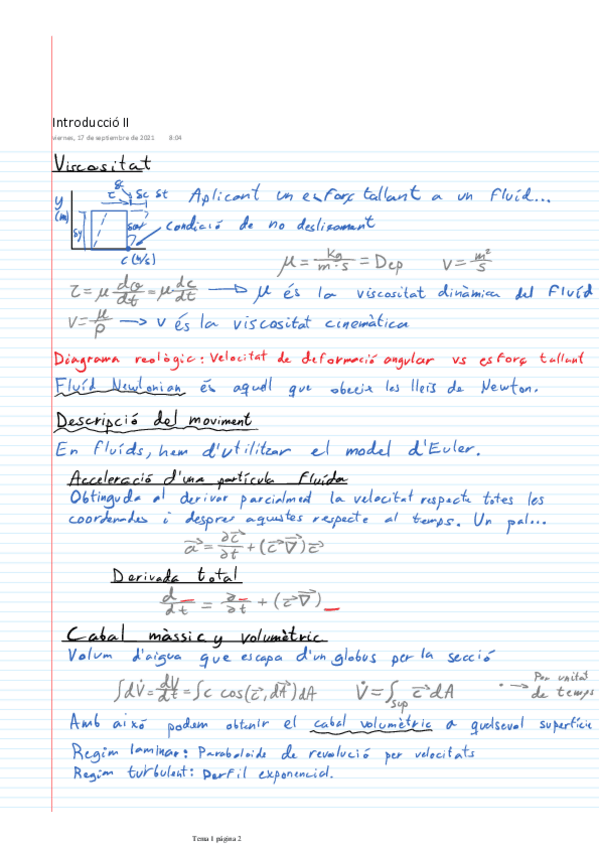 Introducció II
viernes, 17 de septiembre de 2021 8:04
Viscositat
y (m)
δy
τ δc δt Aplicant un esforç tallant a un fluid...
condició de no deslizament
c (m/s)
μ = kg/(m·s) = Dep ν = m²/s
τ = μ dα/dt = μ dc/dt → μ és la viscositat dinàmica del fluid
ν = μ/ρ → ν és la viscositat cinemàtica
Diagrama reològic: Velocitat de deformació angular vs esforç tallant
Fluíd Newtonian és aquell que obeeix les lleis de Newton.
Descripció del moviment
En fluíds, hem d'utilitzar el model d'Euler.
Acceleració d'una partícula fluida
Obtinguda al derivar parcialment la velocitat respecte totes les
coordenades i despres aquestes respecte al temps. Un pal...
a⃗ = ∂c⃗/∂t + (c⃗ ∇⃗) c⃗
Derivada total
d_/dt = ∂_/∂t + (c⃗ ∇⃗) _
Cabal màssic y volumètric
Volum d'aigua que escapa d'un globus per la secció
∫dV̇ = dV/dt = ∫c cos(c⃗, dA⃗) dA V̇ = ∫sup c⃗ dA · → Per unitat de temps
Amb aixó podem obtenir el cabal volumètric a quelseval superfície
Regim laminar: Paraboloide de revolució per velocitats
Regim turbulent: Perfil exponencial.
Tema 1 página 2